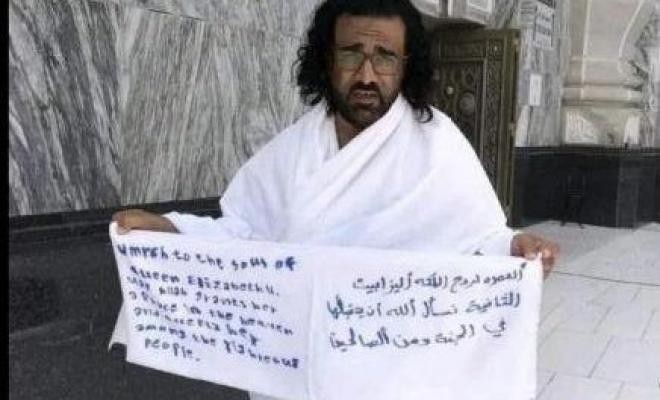 umrah to the soul of
Queen Elizabeth II,
may Allah grants her
a place in the heaven
and accepts her
among the righteous
people.
العمرة لروح الملكة اليزابيث
الثانية نسأل الله أن يتقبلها
في الجنة ومن الصالحين